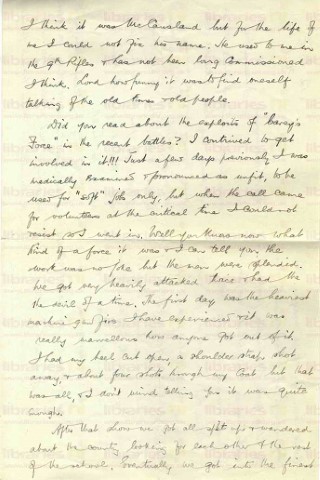 I think it was McCausland but for the life of
me I could not fix his name. He used to be in
the 9th Rifles & has not been long Commissioned
I think. Lord how funny it was to find oneself
talking of the old times & old people.
Did you read about the exploits of "Carey's
Force" in the recent battles? I contrived to get
involved in it!!! Just a few days previously I was
medically examined & pronounced as unfit, to be
used for "soft" jobs only, but when the call came
for volunteers at the critical time I could not
resist so I went in. Well you know now what
kind of a force it was & I can tell you the
work was no joke but the men were splendid.
We got very heavily attacked twice & had the
the devil of a time. The first day was the heaviest
machine gun fire I have experienced & it was
really marvellous how anyone got out of it.
I had my heel cut open, a shoulder strap shot
away, & about four shots through my coat but that
was all, & I don't mind telling you it was quite
enough.
After that show we got all split up & wandered
about the country looking for each other & the rest
of the school, eventually we got into the finest